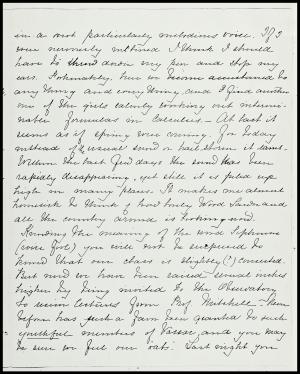 in a most particularly melodious voice. If I
were nervously inclined I think I should
have to throw down my pen and stop my
ears. Fortunately, one becomes accustomed to
any thing and every thing, and I find another
one of the girls calmly working out intermi-
nable formulas in Calculus – At last it
seems as if spring were coming. For today
instead of a usual snow or hail storm it rains.
Within the last few days the snow has been
rapidly disappearing, yet still it is piled up
high in many places. It makes me almost
homesick to think how lovely Wood
all the country around is looking now.
Knowing the meaning of the word Sophmore
(wise fool) you will not be surprised to
find that our class is slightly (!) conceited.
But now we have been raised several inches
higher by being invited to the Observatory
to senior lectures from Prof Mitchell – Never
before has such a favor been granted to such
youthful members of Vassar, and you may
be sure we feel our "oats". Last night you